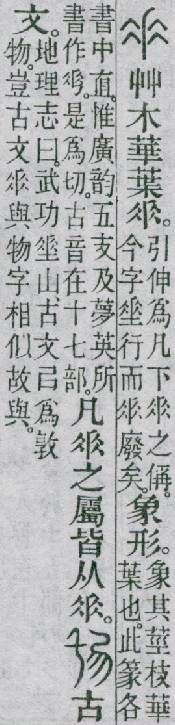 𠂹艸木華葉𠂹。引伸爲凡下𠂹之偁。今字垂行而𠂹廢矣。象形。象其莖枝華葉也。此篆各
書中直。惟廣韵五支及夢英所書作𠂹。是爲切。古音在十七部。凡𠂹之屬皆从𠂹。古
文。地理志曰。武功垂山。古文㠯爲敦物。豈古文𠂹與物字相似故與。